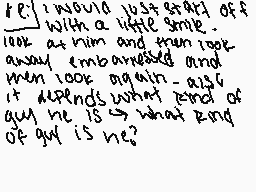 re: i would just start off
with a little smile.
look at him and then look
away embarressed and
then look again - also
it depends what kind of
guy he is → what kind
of guy is he?